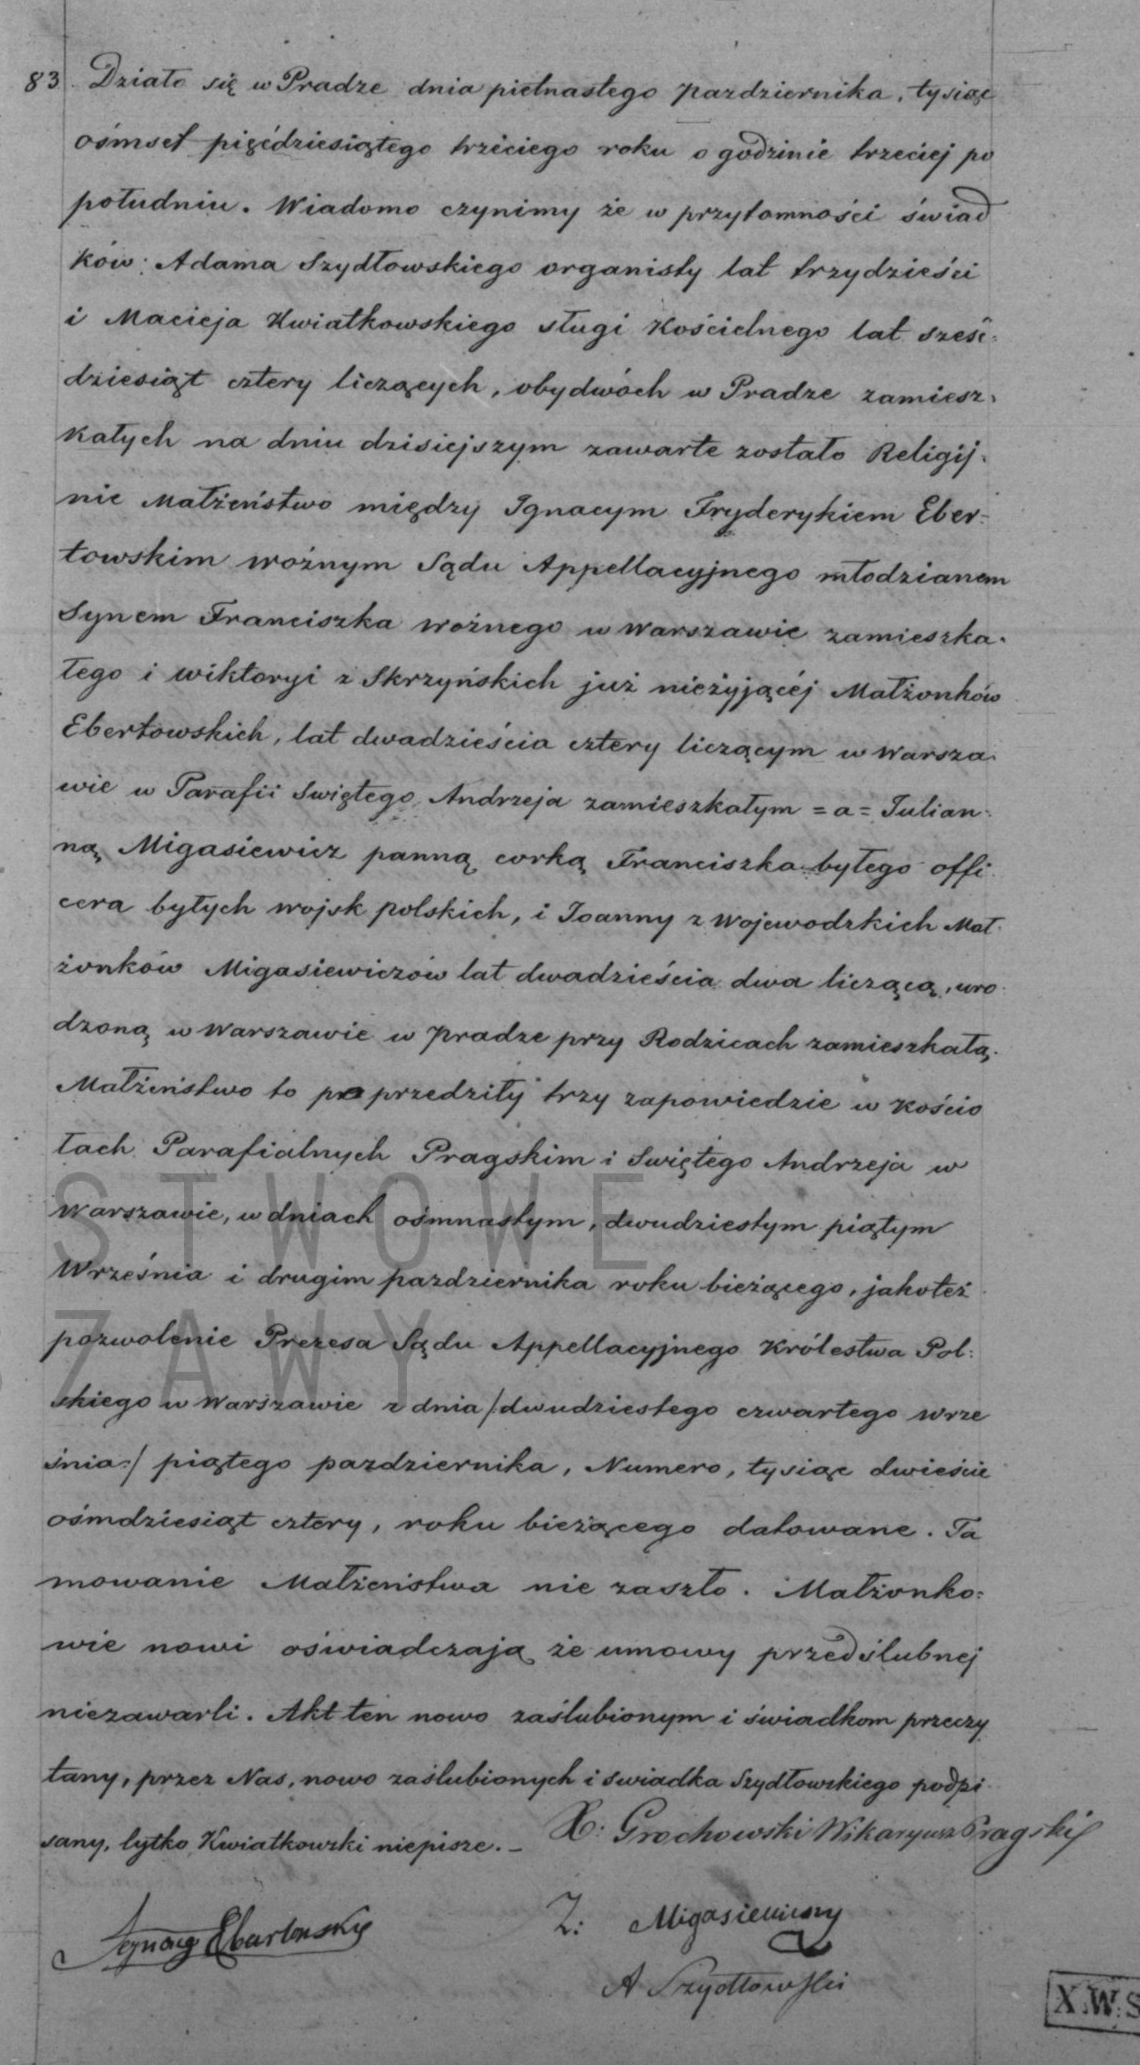 83. Działo się w Pradze dnia pietnastego pazdziernika, tysiąc
ośmset pięćdziesiątego trzeciego roku o godzinie trzeciej po
południu. Wiadomo czynimy że w przytomności świad
ków: Adama Szydłowskiego organisty lat trzydzieści
i Macieja Kwiatkowskiego sługi Kościelnego lat sześć-
dziesiąt cztery liczących, obydwóch w Pradze zamiesz-
kałych na dniu dzisiejszym zawarte zostało Religij-
nie Małżeństwo między Ignacym Fryderykiem Eber-
towskim woźnym Sądu Appellacyjnego młodzianem
Synem Franciszka woźnego w Warszawie zamieszka-
łego i wiktoryi z Skrzyńskich już nieżyjącéj Małżonków
Ebertowskich, lat dwadzieścia cztery liczącym w Warsza-
wie w Parafii Swiętego Andrzeja zamieszkałym = a = Julian-
ną Migasiewicz panną corką Franciszka byłego offi-
cera byłych wojsk polskich, i Joanny z Wojewodzkich Mał-
żonków Migasiewiczów lat dwadzieścia dwa liczącą, uro-
dzoną w Warszawie w Pradze przy Rodzicach zamieszkałą.
Małżeństwo to poprzedziły trzy zapowiedzie w Kościo
łach Parafialnych Pragskim i Swiętego Andrzeja w
Warszawie, w dniach ośmnastym, dwudziestym piątym
Września i drugim pazdziernika roku bieżącego, jakoteż
pozwolenie Prezesa Sądu Appellacyjnego Królestwa Pol-
skiego w Warszawie z dnia /dwudziestego czwartego wrze
śnia/ piątego pazdziernika, Numero, tysiąc dwieście
ośmdziesiąt cztery, roku bieżącego datowane. Ta
mowanie Małżeństwa nie zaszło. Małżonko-
wie nowi oświadczają że umowy przedślubnej
niezawarli. Akt ten nowo zaślubionym i świadkom przeczy
tany, przez Nas, nowo zaślubionych i swiadka Szydłowskiego podpi
sany, lytko Kwiatkowski niepisze. –
X: Grochowski Wikaryusz Pragskij
Ignacy Ebertowsky
J: Migasiewiczny
A Szydłowski
STWOWE
ZAWY
X.W.S